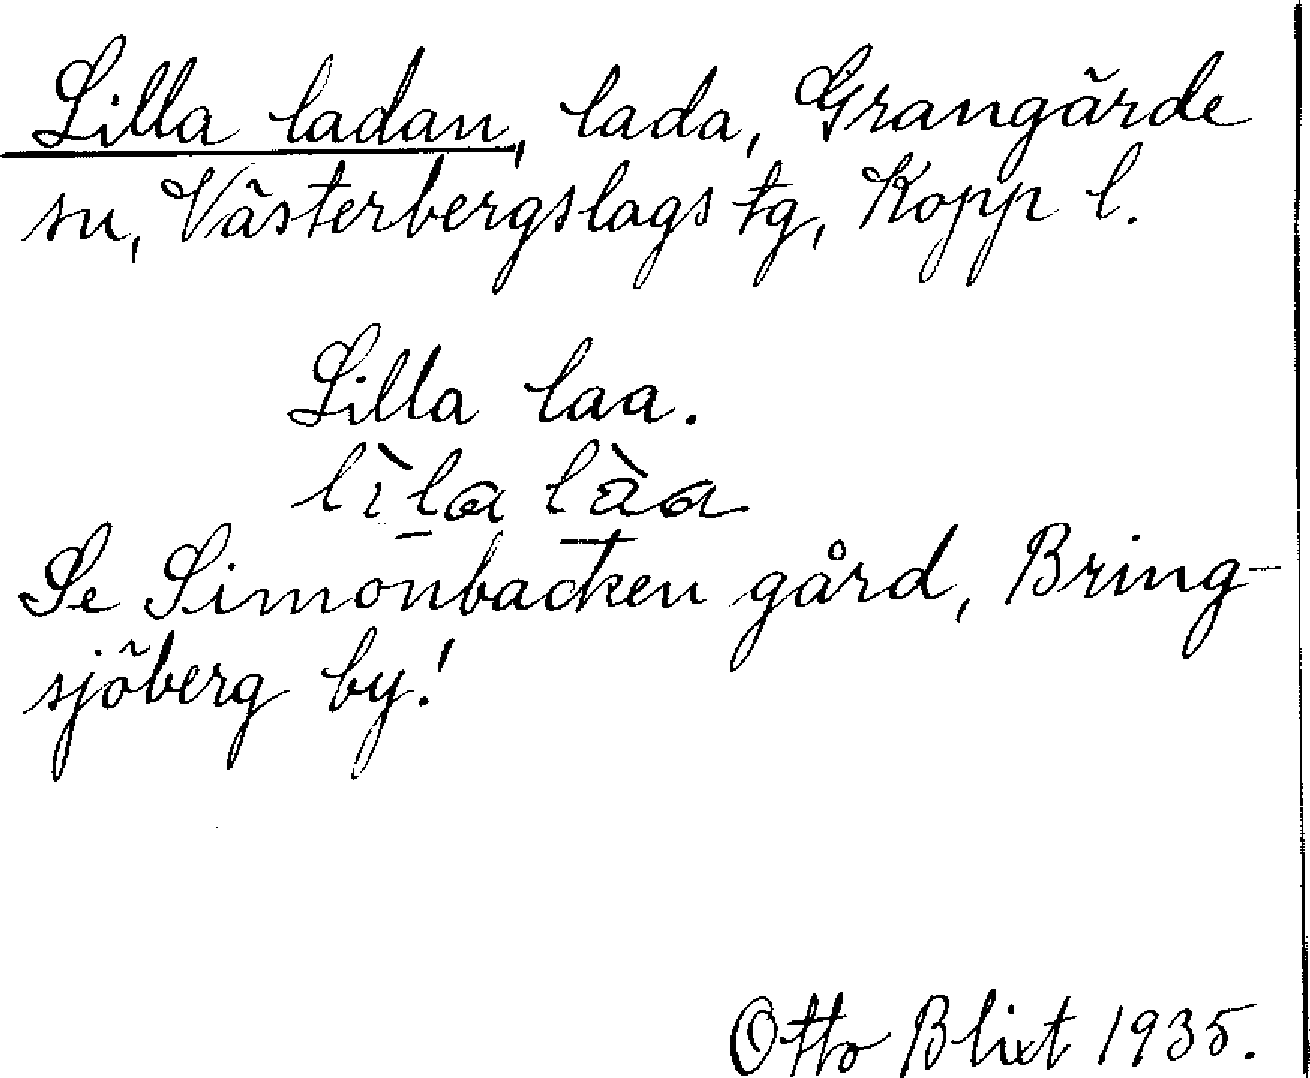 Lilla ladan, lada, Grangärde
sn, Västerbergslags tg, Kopp l.
Lilla laa.
lìla làa
Se Simonbacken gård, Bring-
sjöberg by!
Otto Blixt 1935.